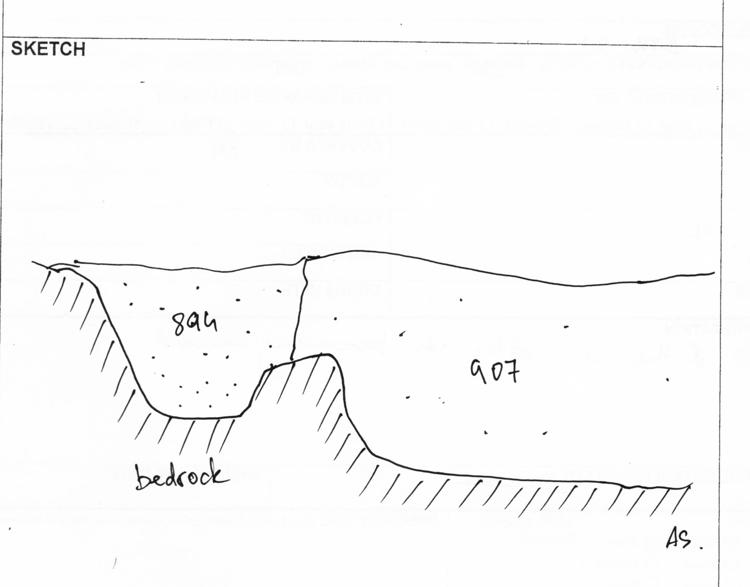 SKETCH
894
907
bedrock
AS.